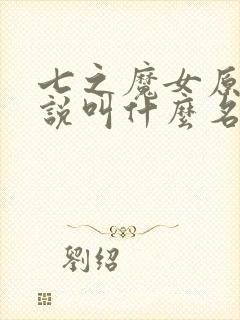 七之魔女原
說叫什麼名
劉紹